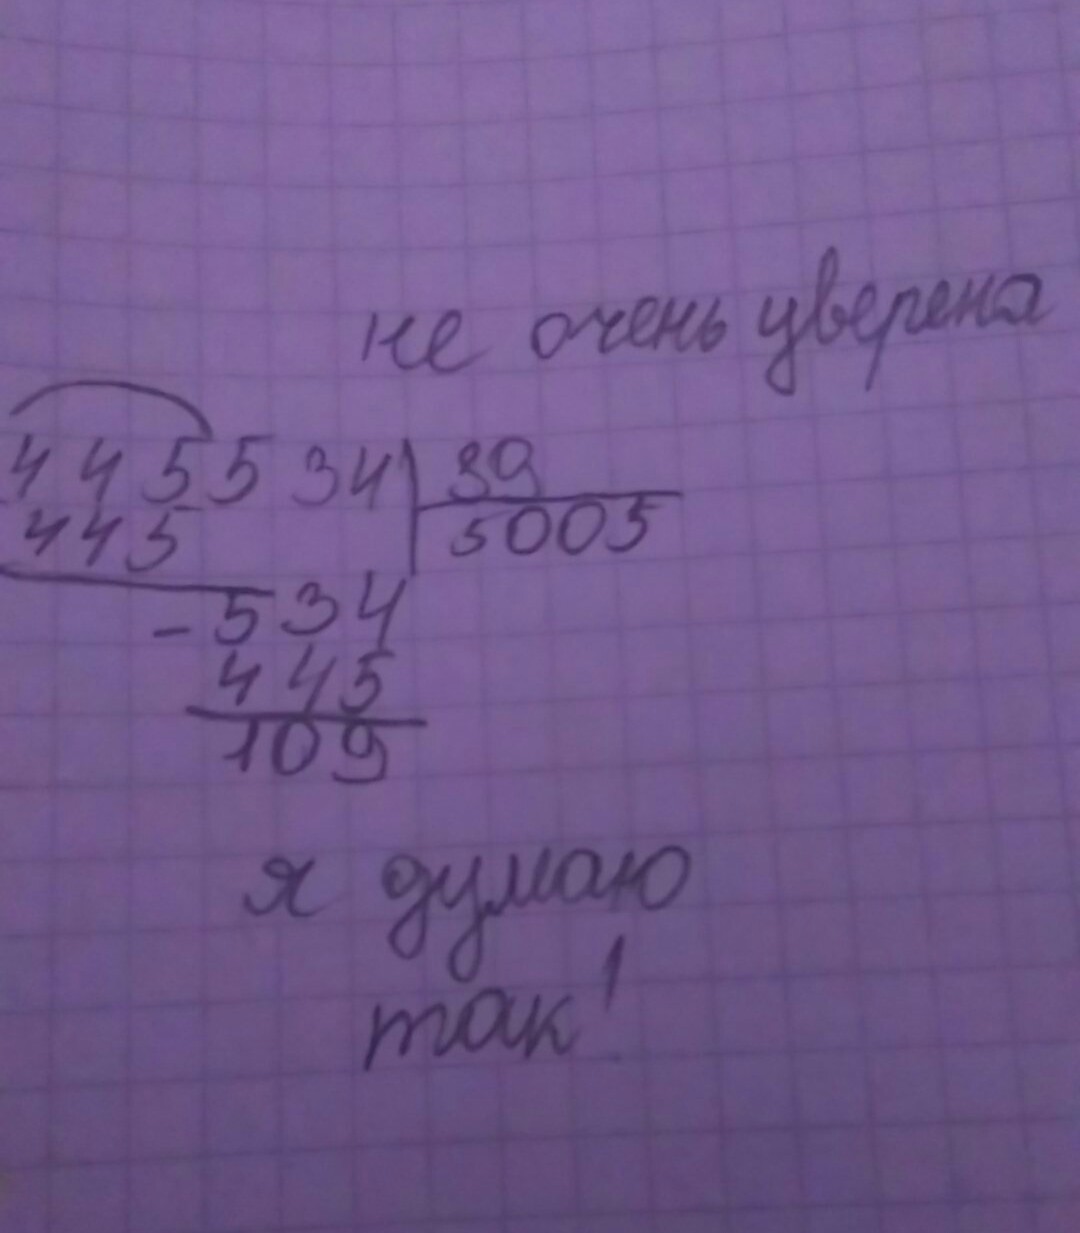 не очень уверена
445534 89
445 5005
-534
445
109
я думаю
так!